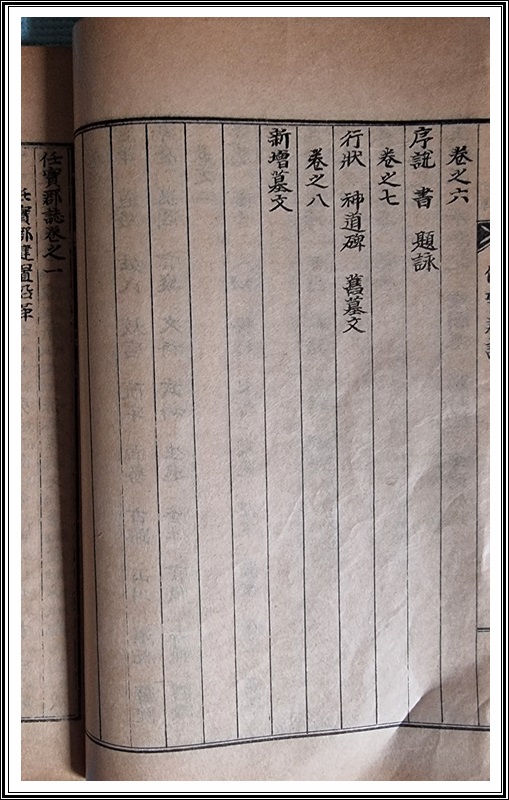 卷之六
序說 書 題詠
卷之七
行狀 神道碑 舊墓文
卷之八
新增墓文
任實郡誌卷之一
任實郡建置沿革